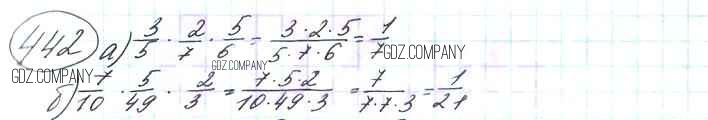 442 а) 3/5 · 2/7 · 5/6 = 3·2·5/5·7·6 = 1/7
GDZ.COMPANY
GDZ.COMPANY
GDZ.COMPANY
б) 7/10 · 5/49 · 2/3 = 7·5·2/10·49·3 = 7/7·7·3 = 1/21